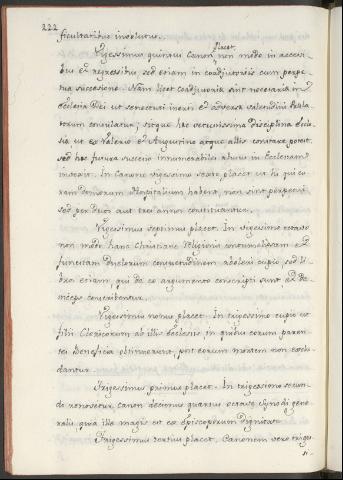 222
facultatibus involutus.
Vigesimus quintus Canon placet, non modo in accessi-
bus et regressibus, sed etiam in coadjutoriis cum perpe-
tua successione. Nam licet coadjutoria sint necessaria in
Ecclesia Dei ut senectuti inertis et adversæ valetudini Præla-
torum consulatur; sitque hæc vetustissima disciplina Eccle-
sia, ut ex Valerio et Augustino atque aliis constare potest,
sed hæc futura successio innumerabiles abusus in Ecclesiam
In Canone vigesimo sexto placet ut hi qui cu-
ram domorum Hospitalium habent, non sint perpetui
sed per duos aut tres annos constituantur.
Vigesimus septimus placet. In vigesimo octavo
non modo hanc Christianæ Religionis contumeliosam et
funestam Duelorum consuetudinem aboleri cupio sed li-
bros etiam, qui de eo argumento conscripti sunt et de-
inceps conscribentur.
Vigesimus nonus placet. In trigesimo cupio ut
filii Clericorum ab illis Ecclesiis in quibus eorum paren-
tes Beneficia obtinuerunt, post eorum mortem non exclu-
dantur.
Trigesimus primus placet. In trigesimo secun-
do renovetur Canon decimus quartus octavæ Synodi gene-
ralis, quia illa magis est ex Episcoporum dignitate.
Trigesimus tertius placet. Canonem vero trige-
si-